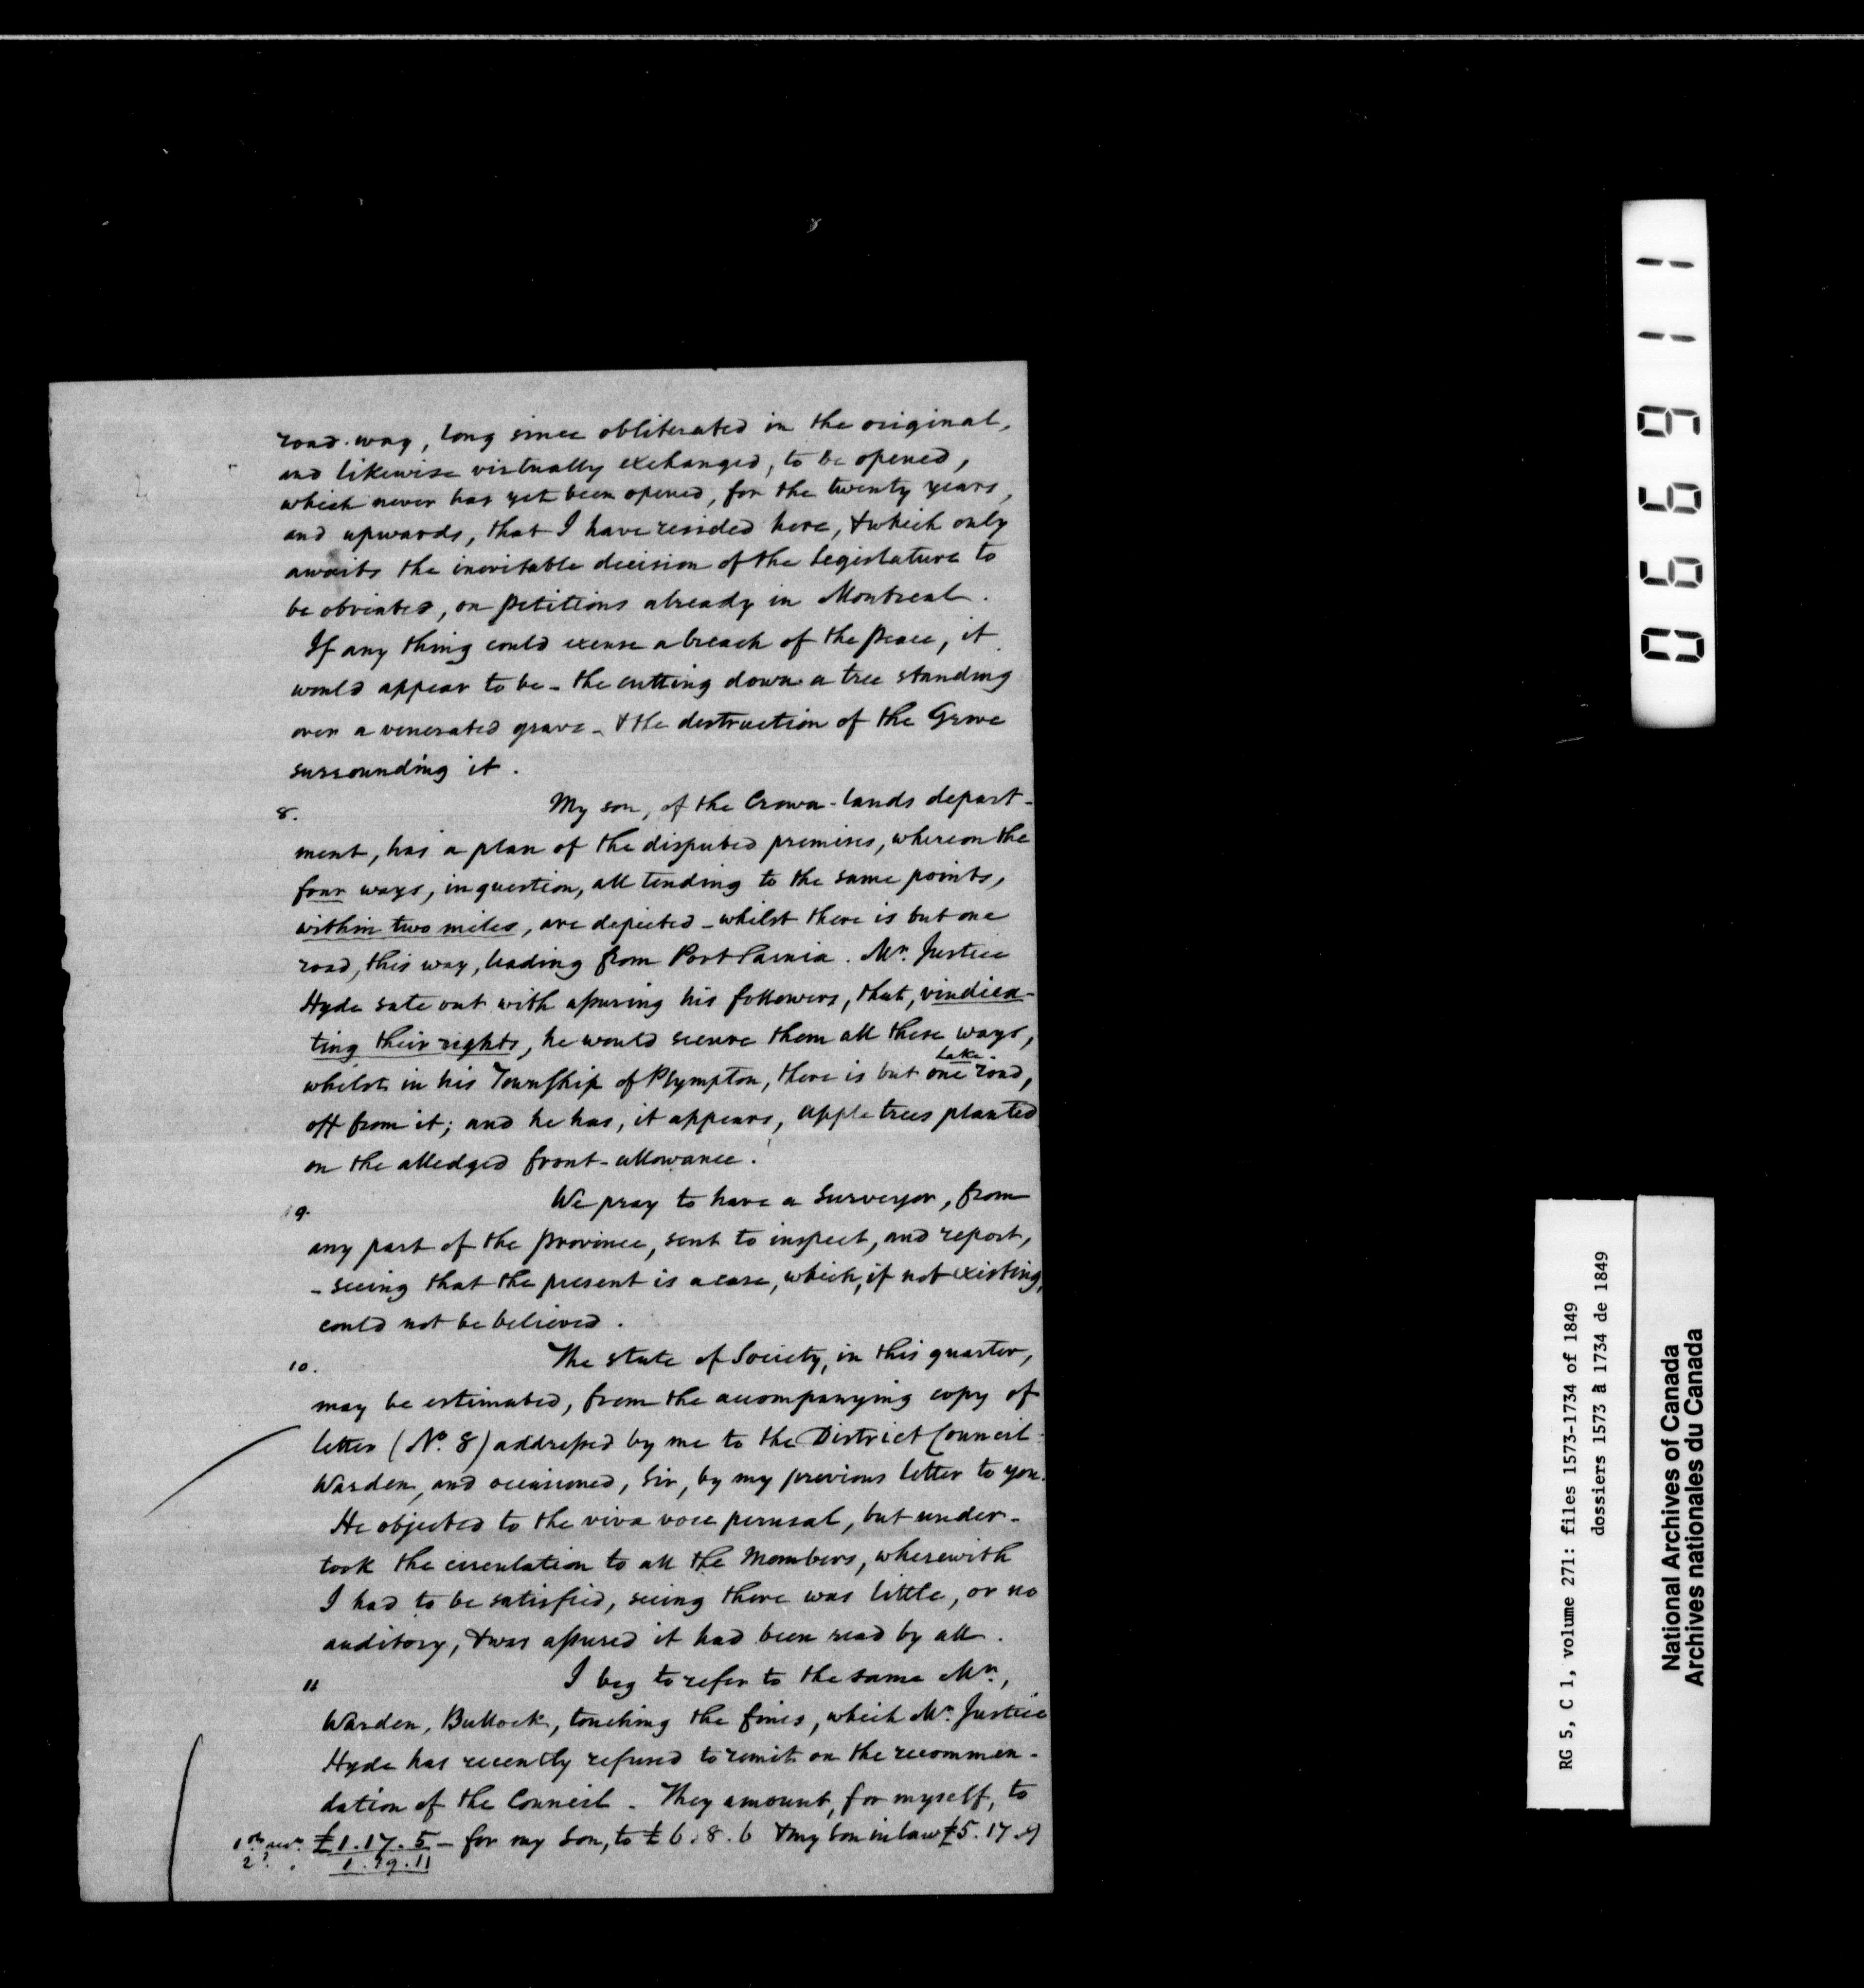 road-way, long since obliterated in the original,
and likewise virtually exchanged, to be opened,
which never has yet been opened, for the twenty years,
and upwards, that I have resided here, & which only
awaits the inevitable decision of the Legislature to
be obviated, on petitions already in Montreal.
If any thing could excuse a breach of the peace, it
would appear to be - the cutting down a tree standing
over a venerated grave - & the destruction of the Grove
surrounding it.
8. My son, of the Crown-lands depart-
ment, has a plan of the disputed premises, whereon the
four ways, in question, all tending to the same points,
within two miles, are depicted - whilst there is but one
road, this way, leading from Port Sarnia. Mr. Justice
Hyde sate out with assuring his followers, that, vindica-
ting their rights, he would secure them all these ways,
whilst in his Township of Plympton, there is but one Lake-road,
off from it; and he has, it appears, apple trees planted
on the alledged front-allowance.
9. We pray to have a Surveyor, from
any part of the province, sent to inspect, and report,
- seeing that the present is a case, which, if not existing,
could not be believed.
10. The state of Society, in this quarter,
may be estimated, from the accompanying copy of
letter (No. 8) addressed by me to the District Council-
Warden, and occasioned, Sir, by my previous letter to you.
He objected to the viva voce perusal, but under-
took the circulation to all the Members, wherewith
I had to be satisfied, seeing there was little, or no
auditory, & was assured it had been read by all.
11 I beg to refer to the same Mr.,
Warden, Bullock, touching the fines, which Mr. Justice
Hyde has recently refused to remit on the recommen-
dation of the Council. They amount, for myself, to
£1.17.5 - for my Son, to £6.8.6 & my Son in law £5.17.9
1.19.11
066911
RG 5, C 1, volume 271: files 1573-1734 of 1849
dossiers 1573 à 1734 de 1849
National Archives of Canada
Archives nationales du Canada